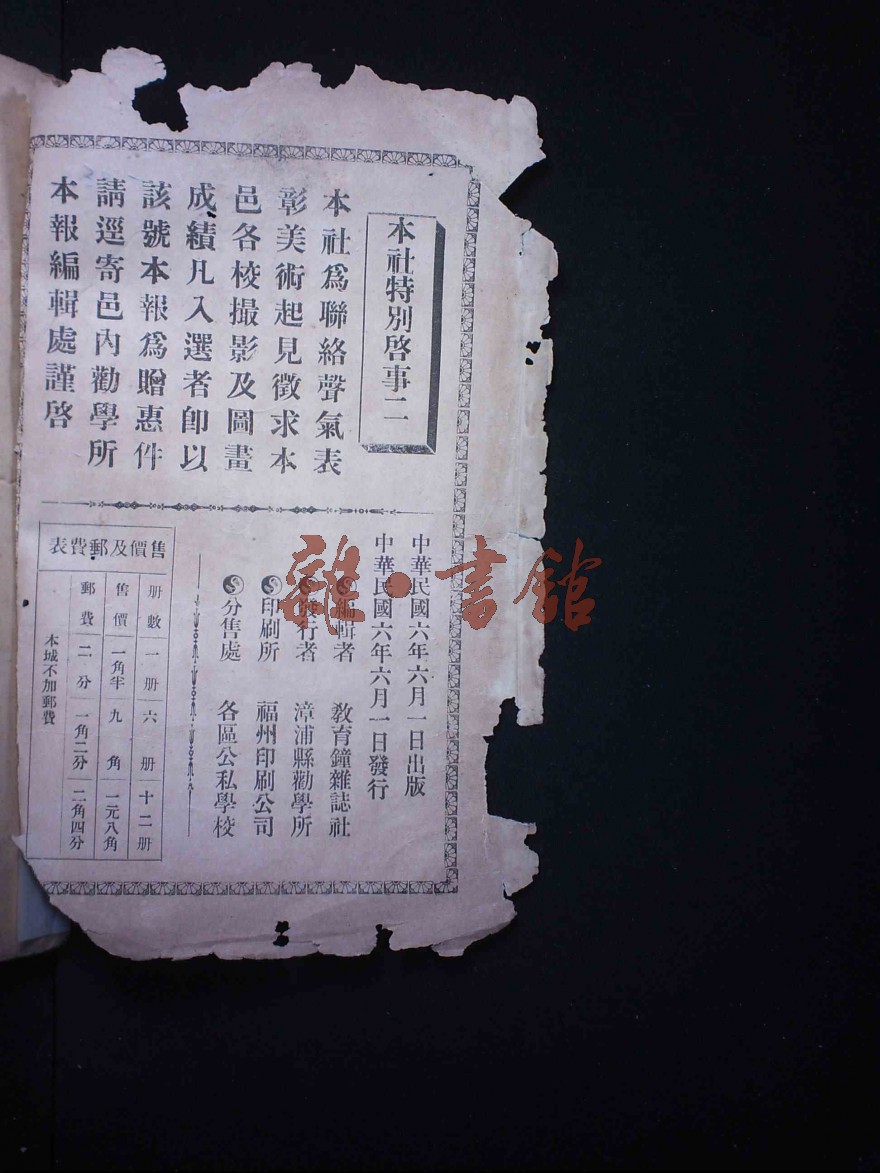 本社特別啓事二
本社爲聯絡聲氣表
彰美術起見徵求本
邑各校撮影及圖畫
成績凡入選者卽以
該號本報爲贈惠件
請逕寄邑內勸學所
本報編輯處謹啓
中華民國六年六月一日出版
中華民國六年六月一日發行
編輯者 教育鐘雜誌社
發行者 漳浦縣勸學所
印刷所 福州印刷公司
分售處 各區公私學校
售價及郵費表
册數 一册 六册 十二册
售價 一角半 九角 一元八角
郵費 二分 一角二分 二角四分
本城不加郵費
雜·書館